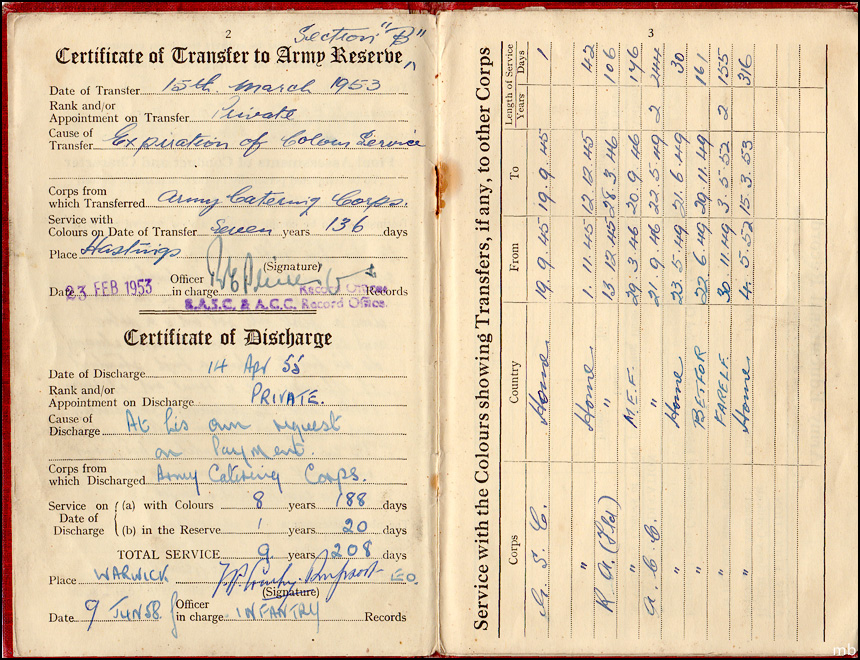 2
Section "B"
Certificate of Transfer to Army Reserve
Date of Transfer 15th March 1953
Rank and/or
Appointment on Transfer Private
Cause of
Transfer Expiration of Colour Service
Corps from
which Transferred Army Catering Corps.
Service with
Colours on Date of Transfer Seven years 136 days
Place Hastings
(Signature)
Officer
Date 23 FEB 1953 in charge Records
R.A.S.C. & A.C.C. Record Office.
Certificate of Discharge
Date of Discharge 14 Apr 55
Rank and/or
Appointment on Discharge PRIVATE.
Cause of
Discharge At his own request
on Payment.
Corps from
which Discharged Army Catering Corps.
Service on (a) with Colours 8 years 188 days
Date of
Discharge (b) in the Reserve 1 years 20 days
TOTAL SERVICE 9 years 208 days
Place WARWICK
(Signature)
Officer
Date 9 JUN 58 in charge INFANTRY Records
3
Service with the Colours showing Transfers, if any, to other Corps
Corps Country From To Length of Service
Years Days
G. S. C. Home 19.9.45 19.9.45 1
" Home 1.11.45 12.12.45 42
R A (Fld) " 13.12.45 28.3.46 106
" M.E.F. 29.3.46 20.9.46 176
A. C. C. " 21.9.46 22.5.49 2 244
" Home 23.5.49 21.6.49 30
" BETFOR 22.6.49 29.11.49 161
" FARELF 30.11.49 3.5.52 2 155
" Home 4.5.52 15.3.53 316
mb